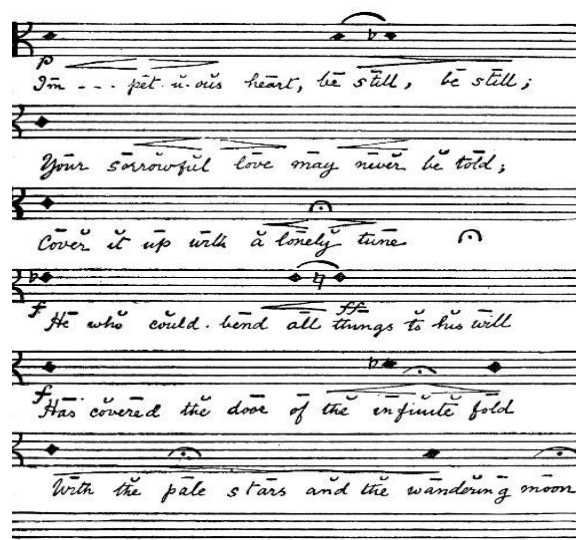 p
Im - - - pet-u-ous heart, be still, be still;
Your sorrowful love may never be told;
Cover it up with a lonely tune
f ff
He who could bend all things to his will
f
Has covered the door of the infinite fold
With the pale stars and the wandering moon